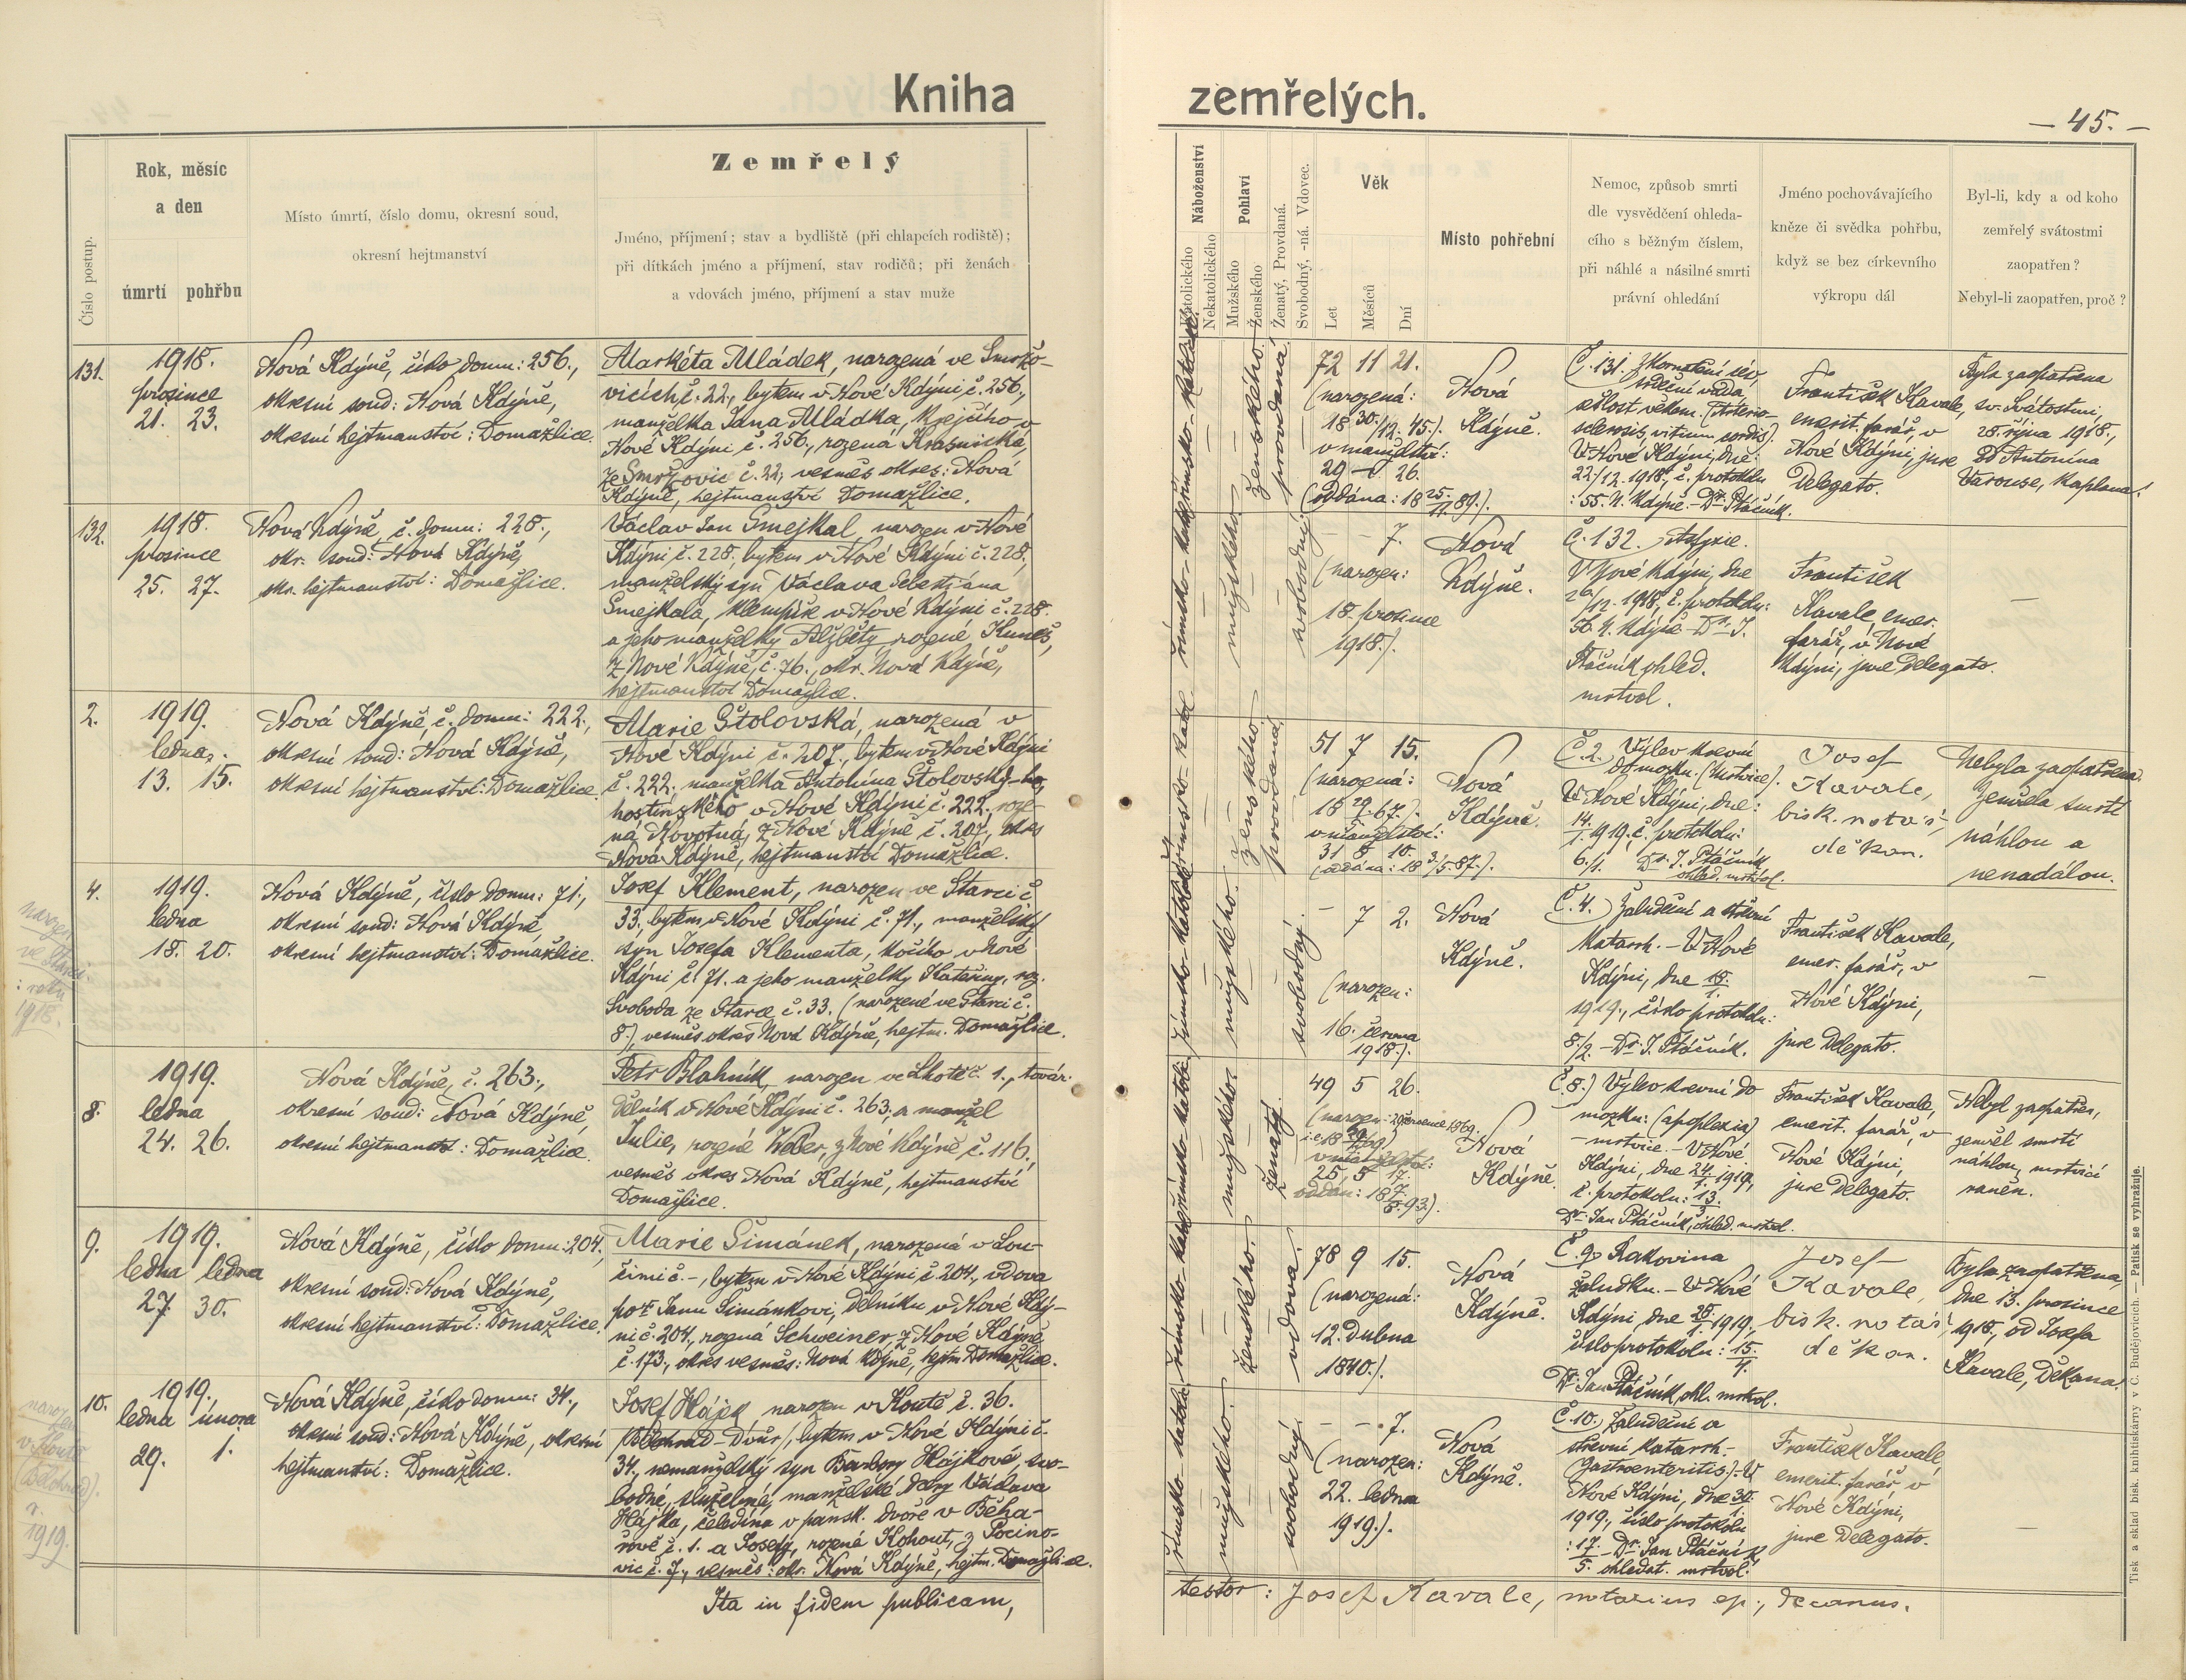 Kniha
zemřelých.
— 45. —
Číslo postup.
Rok, měsíc
a den
úmrtí pohřbu
Místo úmrtí, číslo domu, okresní soud,
okresní hejtmanství
Zemřelý
Jméno, příjmení; stav a bydliště (při chlapcích rodiště);
při dítkách jméno a příjmení, stav rodičů; při ženách
a vdovách jméno, příjmení a stav muže
Náboženství
Katolického
Nekatolického
Pohlaví
Mužského
Ženského
Ženatý, Provdaná.
Svobodný, -ná. Vdovec.
Věk
Let
Měsíců
Dní
Místo pohřební
Nemoc, způsob smrti
dle vysvědčení ohleda-
cího s běžným číslem,
při náhlé a násilné smrti
právní ohledání
Jméno pochovávajícího
kněze či svědka pohřbu,
když se bez církevního
výkropu dál
Byl-li, kdy a od koho
zemřelý svátostmi
zaopatřen?
Nebyl-li zaopatřen, proč?
131.
1918.
prosince
21. 23.
Nová Kdýně, číslo domu: 256.,
okresní soud: Nová Kdýně,
okresní hejtmanství: Domažlice.
Markéta Mládek, narozená ve Smržo-
vicích č. 22., bytem v Nové Kdýni č. 256.,
manželka Jana Mládka, krejčího v
Nové Kdýni č. 256., rozená
ze Smržovic č. 22., vesměs okres: Nová
Kdýně, hejtmanství Domažlice.
římsko-katolické
ženského.
provdaná
72 11 21.
(narozená:
18 30./12. 45.).
v manželství:
29 – 26.
(oddána: 18 25./11. 89.).
Nová
Kdýně.
Č. 131.
srdeční vada,
sešlost věkem. (Arterio-
sclerosis, vitium cordis).
V Nové Kdýni, dne:
22./12. 1918., č. protokolu
: 55. N. Kdýně. – Dr. Ptáčník.
František Kavale,
emerit. farář, v
Nové Kdýni, jure
Delegato.
Byla zaopatřena
sv. Svátostmi,
28. října 1918.,
od Antonína
Varouse, kaplana.
132.
1918.
prosince
25. 27.
Nová Kdýně, č. domu: 228.,
okr. soud: Nová Kdýně,
okr. hejtmanství: Domažlice.
Václav Jan Smejkal, narozen v Nové
Kdýni č. 228., bytem v Nové Kdýni č. 228.,
manželský syn Václava Šebestiána
Smejkala, klempíře v Nové Kdýni č. 228.
a jeho manželky Alžběty, rozené Kuneš,
z Nové Kdýně, č. 76., okr. Nová Kdýně,
hejtmanství Domažlice.
římsko-katol.
mužského.
svobodný.
– – 7.
(narozen:
18. prosince
1918.).
Nová
Kdýně.
Č. 132. Asfyxie.
V Nové Kdýni, dne
26./12. 1918., č. protokolu:
56. N. Kdýně – Dr. J.
Ptáčník, ohled.
mrtvol.
František
Kavale, emer.
farář, v Nové
Kdýni, jure Delegato.
—
2.
1919.
ledna.
13. 15.
Nová Kdýně, č. domu: 222.,
okresní soud: Nová Kdýně,
okresní hejtmanství: Domažlice.
Marie Štolovská, narozená v
Nové Kdýni č. 207., bytem v Nové Kdýni
č. 222., manželka Antonína Štolovský-ho,
hostinského v Nové Kdýni č. 222., roze-
ná Novotná, z Nové Kdýně č. 207., okres
Nová Kdýně, hejtmanství Domažlice.
římsko-katol.
ženského.
provdaná.
51 7 15.
(narozená:
18 29./5. 67.).
v manželství:
31 8 10.
(oddána: 18 3./5. 87.).
Nová
Kdýně.
Č. 2. Výlev krevní
do mozku. (Mrtvice).
V Nové Kdýni, dne:
14./1. 1919., č. protokolu:
6./1. Dr. J. Ptáčník,
ohled. mrtvol.
Josef
Kavale,
bisk. notář,
děkan.
Nebyla zaopatřena.
Zemřela smrtí
náhlou a
nenadálou.
4.
1919.
ledna
18. 20.
Nová Kdýně, číslo domu: 71.,
okresní soud: Nová Kdýně,
okresní hejtmanství: Domažlice.
narozen
ve Starci
: roku
1918.
Josef Klement, narozen ve Starci č.
33., bytem v Nové Kdýni č. 71., manželský
syn Josefa Klementa, kočího v Nové
Kdýni č. 71. a jeho manželky Kateřiny, roz.
Svoboda ze Starce č. 33. (narozené ve Starci č.
8.), vesměs okres Nová Kdýně, hejtm. Domažlice.
římsko-katolické
mužského.
svobodný.
– 7 2.
(narozen:
16. června
1918.).
Nová
Kdýně.
Č. 4.) Žaludeční a střevní
katarrh. – V Nové
Kdýni, dne 18./1.
1919., číslo protokolu:
8./2. – Dr. J. Ptáčník.
František Kavale,
emer. farář, v
Nové Kdýni,
jure Delegato.
—
8.
1919.
ledna
24. 26.
Nová Kdýně, č. 263.,
okresní soud: Nová Kdýně,
okresní hejtmanství: Domažlice.
Petr Blahník, narozen ve Lhotě č. 1., továr.
dělník v Nové Kdýni č. 263. a manžel
Julie, rozené Weber, z Nové Kdýně č. 116.,
vesměs okres Nová Kdýně, hejtmanství
Domažlice.
římsko-katol.
mužského.
ženatý.
49 5 26.
v manželství:
25 5 17.
oddán: 18 7./8. 93.).
Nová
Kdýně.
Č. 8.) Výlev krevní do
mozku: (apoplexia)
– mrtvice. – V Nové
Kdýni, dne 24./1. 1919.,
č. protokolu: 13./3.
Dr. Jan Ptáčník, ohled. mrtvol.
František Kavale,
emerit. farář, v
Nové Kdýni,
jure Delegato.
Nebyl zaopatřen,
zemřel smrtí
náhlou, mrtvicí
raněn.
9.
1919.
ledna ledna
27. 30.
Nová Kdýně, číslo domu: 204.,
okresní soud: Nová Kdýně,
okresní hejtmanství: Domažlice.
Marie Šimánek, narozená v Lou-
čimi č. –, bytem v Nové Kdýni č. 204., vdova
po † Janu Šimánkovi, dělníku v Nové Kdý-
ni č. 204., rozená Schweiner, z Nové Kdýně,
č. 173., okres vesměs: Nová Kdýně, hejtm. Domažlice.
římsko-katol.
ženského.
vdova.
78 9 15.
(narozená:
12. Dubna
1840.).
Nová
Kdýně.
Č. 9. Rakovina
žaludku. – V Nové
Kdýni, dne 28./1. 1919.,
číslo protokolu: 15./4.
Dr. Jan Ptáčník, ohl. mrtvol.
Josef
Kavale,
bisk. notář,
děkan.
Byla zaopatřena,
dne 13. prosince
1918., od Josefa
Kavale, Děkana.
10.
1919.
ledna února
29. 1.
Nová Kdýně, číslo domu: 34.,
okresní soud: Nová Kdýně, okresní
hejtmanství: Domažlice.
narozen
v Koutě
(Bělohrad).
r.
1919.
Josef Hájek, narozen v Koutě č. 36.
(Bělohrad-Dvůr), bytem v Nové Kdýni č.
34., nemanželský syn Barbory Hájkové, svo-
bodné, služebné, manželské dcery Václava
Hájka, čeledína v pansk. dvoře v Běha-
řově č. 1. a Josefy, rozené Kohout, z Pocino-
vic č. 7., vesměs: okr. Nová Kdýně, hejtm. Domažlice.
římsko-katol.
mužského.
svobodný.
– – 7.
(narozen:
22. ledna
1919.).
Nová
Kdýně.
Č. 10.) Žaludeční a
střevní katarrh-
(Gastroenteritis.)-V
Nové Kdýni, dne 30./1.
1919., číslo protokolu
: 17./5. – Dr. Jan Ptáčník,
ohledat. mrtvol.
František Kavale,
emerit. farář, v
Nové Kdýni,
jure Delegato.
—
Ita in fidem publicam,
testor: Josef Kavale, notarius ep., decanus.
Tisk a sklad bisk. knihtiskárny v Č. Budějovicích. — Patisk se vyhražuje.